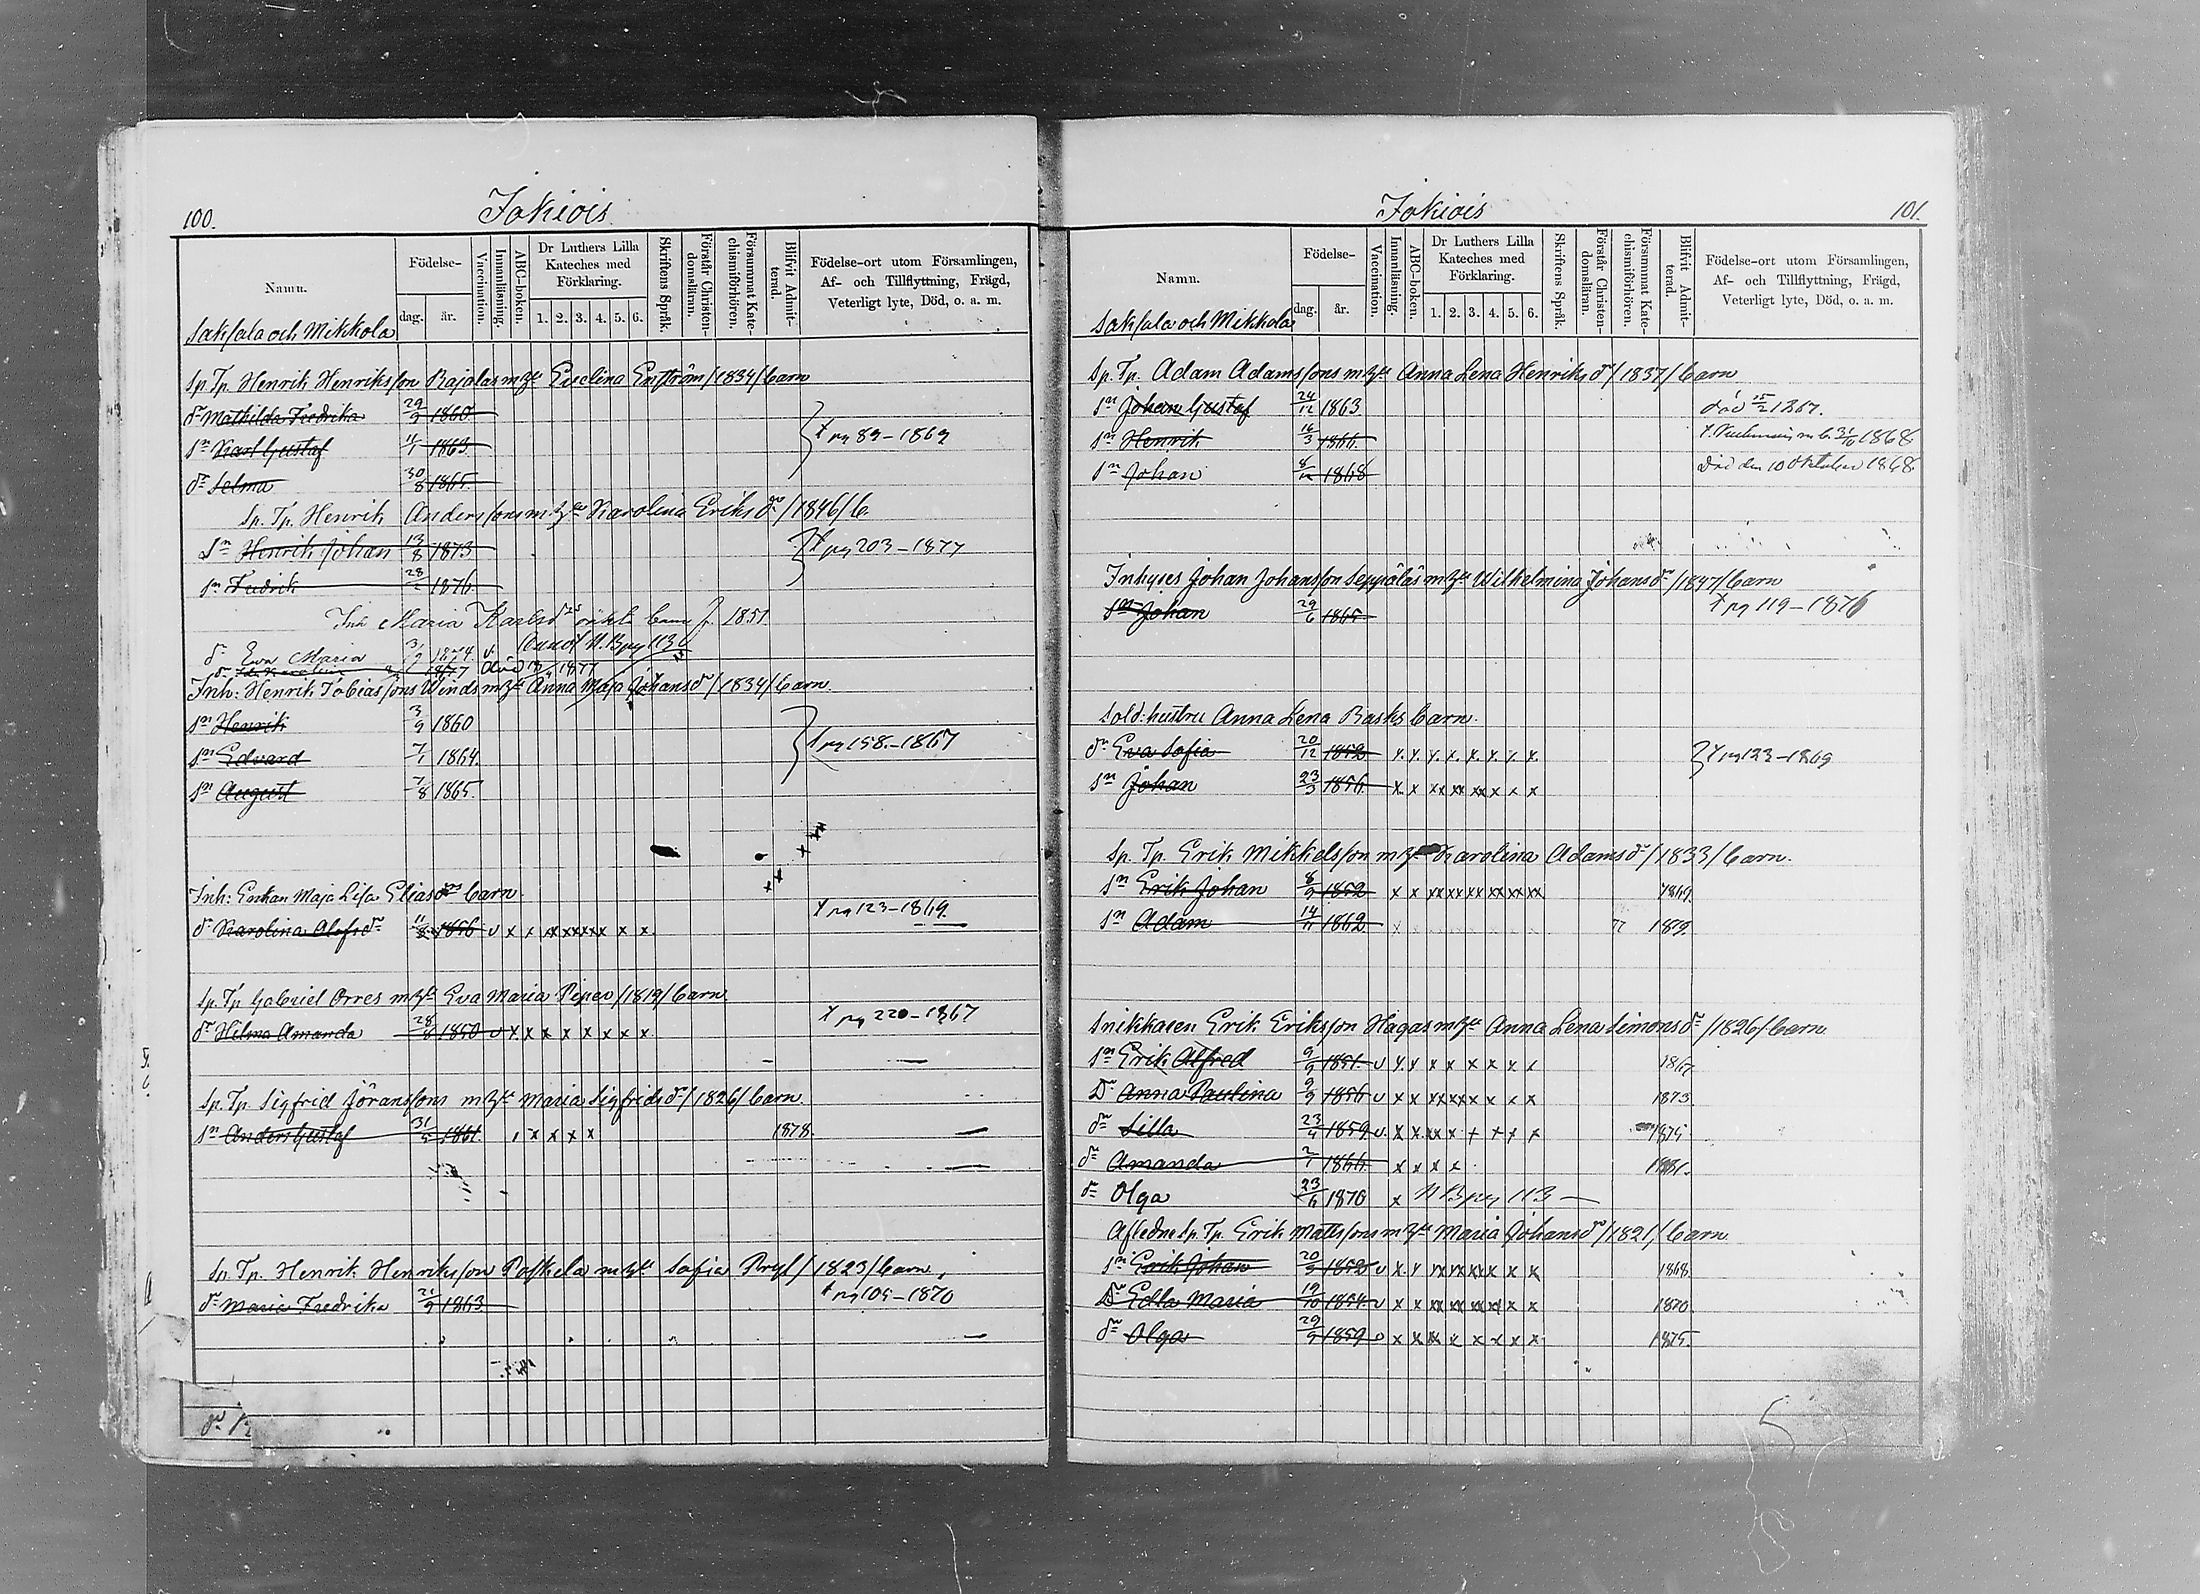 100.
Jokiois
Namn.
Födelse-
dag.
år.
Vaccination.
Innanläsning.
ABC-boken.
Dr Luthers Lilla
Kateches med
Förklaring.
1. 2. 3. 4. 5. 6.
Skriftens Språk.
Förstår Christen-
domsläran.
Försummat Kate-
chismiförhören.
Blifvit Admit-
terad.
Födelse-ort utom Församlingen,
Af- och Tillflyttning, Frägd,
Veterligt lyte, Död, o. a. m.
Saksala och Mikkola
Sp. Tp. Henrik Henriksson Rajalas m hu Evelina Enström /1834/ barn
dr Mathilda Fredrika 29/9 1860
sn Karl Gustaf 11/1 1863 † pg 89-1869
dr Selma 30/8 1865
Sp. Tp. Henrik Anderssons m hu Karolina Eriks dr /1846/ b.
Sn Henrik Johan 13/8 1873 † pg 203-1877
sn Fredrik 28/ 1876
Inh Maria Karlsdrs oäkt barn f. 1851
dr Eva Maria 3/9 1874 v. N.B. pg 113
dr 1877 död 1877
Inh: Henrik Tobiassons Winds m hu Anna Maja Johans dr /1834/ barn.
sn Henrik 3/9 1860
sn Edvard 7/1 1864. pg 158.-1867
sn August 7/8 1865.
Inh: Enkan Maja Lisa Elias drs barn
dr Karolina Alefs dr 11/8 1856 v x x xx xxxxx x x † pg 123-1869.
Sp. Tp Gabriel Orres m hu Eva Maria Piper /1819/ barn
dr Hilma Amanda 28/8 1850 v x x x x x x x x † pg 220-1867
Sp. Tp. Sigfrid Göranssons m hu Maria Sigfrids dr /1826/ barn.
sn Anders Gustaf 31/5 1861. x x x x 1878.
Sp. Tp. Henrik Henriksson Paskela m hu Sofia Pryl /1823/ barn,
dr Maria Fredrika 21/9 1863 † pg 105-1870
dr
101.
Jokiois
Namn.
Födelse-
dag.
år.
Vaccination.
Innanläsning.
ABC-boken.
Dr Luthers Lilla
Kateches med
Förklaring.
1. 2. 3. 4. 5. 6.
Skriftens Språk.
Förstår Christen-
domsläran.
Försummat Kate-
chismiförhören.
Blifvit Admit-
terad.
Födelse-ort utom Församlingen,
Af- och Tillflyttning, Frägd,
Veterligt lyte, Död, o. a. m.
Saksala och Mikkola
Sp. Tp. Adam Adamssons m hu Anna Lena Henriks dr /1837/ barn
sn Johan Gustaf 24/12 1863 död 15/2 1867.
sn Henrik 16/3 1866 31/10 1868
sn Johan 1868 Död den 10 Oktober 1868
Inhyses Johan Johansson Seppäläs m hu Wilhelmina Johans dr /1847/ barn
sn Johan 29/6 1865 † pg 119-1876
Sold: hustru Anna Lena Rasks barn.
dr Eva Sofia 20/12 1852 x. x. x. x. x. x. x. x. † pg 123-1869
sn Johan 23/3 1856. x x xx xx xx x x x
Sp. Tp. Erik Mikkelsson m hu Karolina Adams dr /1833/ barn.
sn Erik Johan 8/9 1852 x x xx xx xx xx xx xx 1869.
sn Adam 14/11 1862 1879.
Snikkaren Erik Eriksson Hagas m hu Anna Lena Simons dr /1826/ barn
sn Erik Alfred 9/9 1851. v x x x x x x x x 1867
Dr Anna Paulina 9/9 1856 v x x xx xx x x x x 1873
dr Lilla 23/4 1859 v. x x xx x x x x x 1875
dr Amanda 2/1 1866 x x x x 1881.
dr Olga 23/6 1870 x N B pag 113
Aflednesp. Tp. Erik Mattssons m hu Maria Johans dr /1821/ barn
sn Erik Johan 20/5 1852 v x x xx xx xx x x x 1868
Dr Edla Maria 19/10 1854. v x x xx xx xx xx x x 1870
dr Olga 29/5 1859 v x x xx x x x x x 1875.